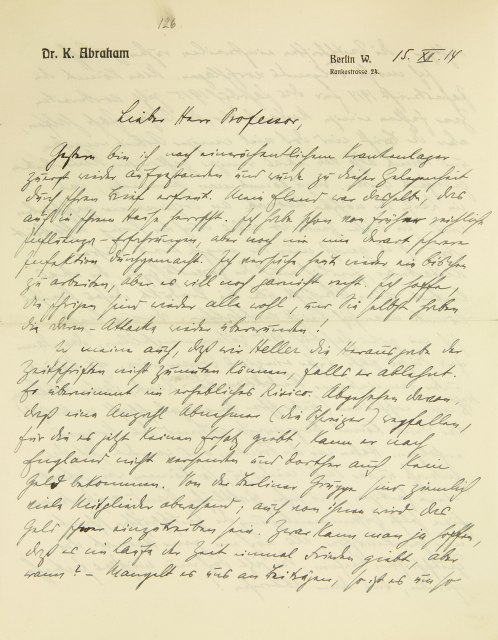 126
Dr. K. Abraham
Berlin W. 15. XI. 14
Rankestrasse 24.
Lieber Herr Professor,
Gestern bin ich nach einwöchentlichem Krankenlager
zuerst wieder aufgestanden und wurde zu dieser Gelegenheit
durch Ihren Brief erfreut. Mein Elend war dasselbe, das
auch in Ihrem Hause herrscht. Ich habe schon von früher reichlich
Influenza-Erfahrungen, aber noch nie eine derart schwere
Infektion durchgemacht. Ich versuche heute wieder ein bißchen
zu arbeiten, aber es will noch garnicht recht. Ich hoffe,
die Ihrigen sind wieder alle wohl, und Sie selbst haben
die Darm-Attacke wieder überwunden!
Ich meine auch, daß wir Heller die Herausgabe der
Zeitschriften nicht zumuten können, falls er ablehnt.
Er übernimmt ein erhebliches Risico. Abgesehen davon,
daß eine Anzahl Abnehmer (die Schweizer) wegfallen,
für die es jetzt keinen Ersatz giebt, kann er nach
England nicht versenden und dorther auch kein
Geld bekommen. Von der Berliner Gruppe sind ziemlich
viele Mitglieder abwesend; auch von ihnen wird das
Geld schwer einzutreiben sein. Zwar kann man ja hoffen,
daß es im Laufe der Zeit einmal Frieden giebt, aber
wann? – Mangelt es uns an Beiträgen, so ist es um so